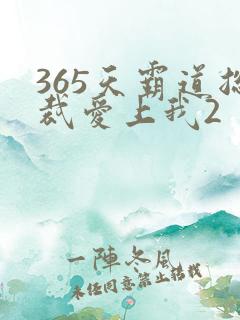 365天霸道总
裁爱上我2
一阵冬风
未经同意禁止转载